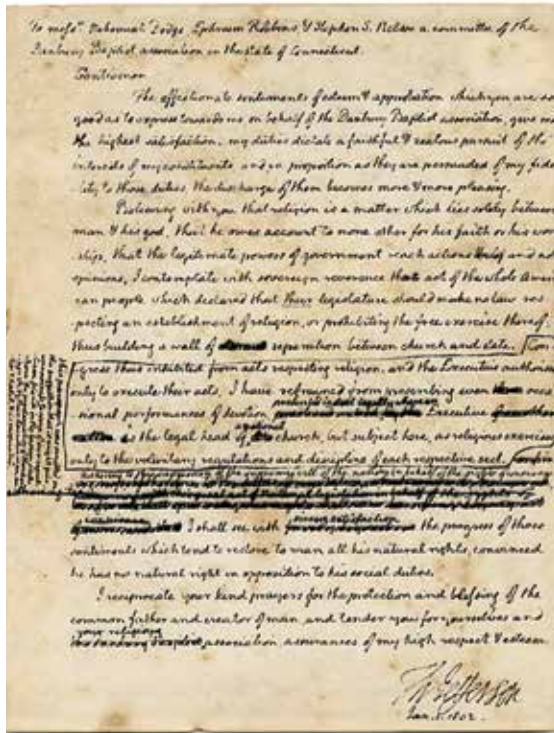 To mess.rs Nehemiah Dodge, Ephraim Robbins, & Stephen S. Nelson a committee of the
Danbury Baptist association in the state of Connecticut.
Gentlemen
The affectionate sentiments of esteem & approbation which you are so
good as to express towards me on behalf of the Danbury Baptist association, give me
the highest satisfaction. my duties dictate a faithful & zealous pursuit of the
interests of my constituents and in proportion as they are persuaded of my fide-
-lity to those duties, the discharge of them becomes more & more pleasing.
Believing with you that religion is a matter which lies solely between
man & his god, that he owes account to none other for his faith or his wor-
-ship, that the legitimate powers of government reach actions only and not
opinions, I contemplate with sovereign reverence that act of the whole Ameri-
can people which declared that their legislature should make no law res-
-pecting an establishment of religion, or prohibiting the free exercise thereof,
thus building a wall of separation between church and state. Con-
gress thus inhibited from acts respecting religion, and the Executive authorised
only to execute their acts, I have refrained from prescribing even occa-
-sional performances of devotion Executive
is the legal head of church, but subject here, as religious exercises
only to the voluntary regulations and discipline of each respective sect.
I shall see with the progress of those
sentiments which tend to restore to man all his natural rights, convinced
he has no natural right in opposition to his social duties.
I reciprocate your kind prayers for the protection and blessing of the
common father and creator of man, and tender you for yourselves and
your religious
association, assurances of my high respect & esteem.
Th Jefferson
Jan. 1. 1802.